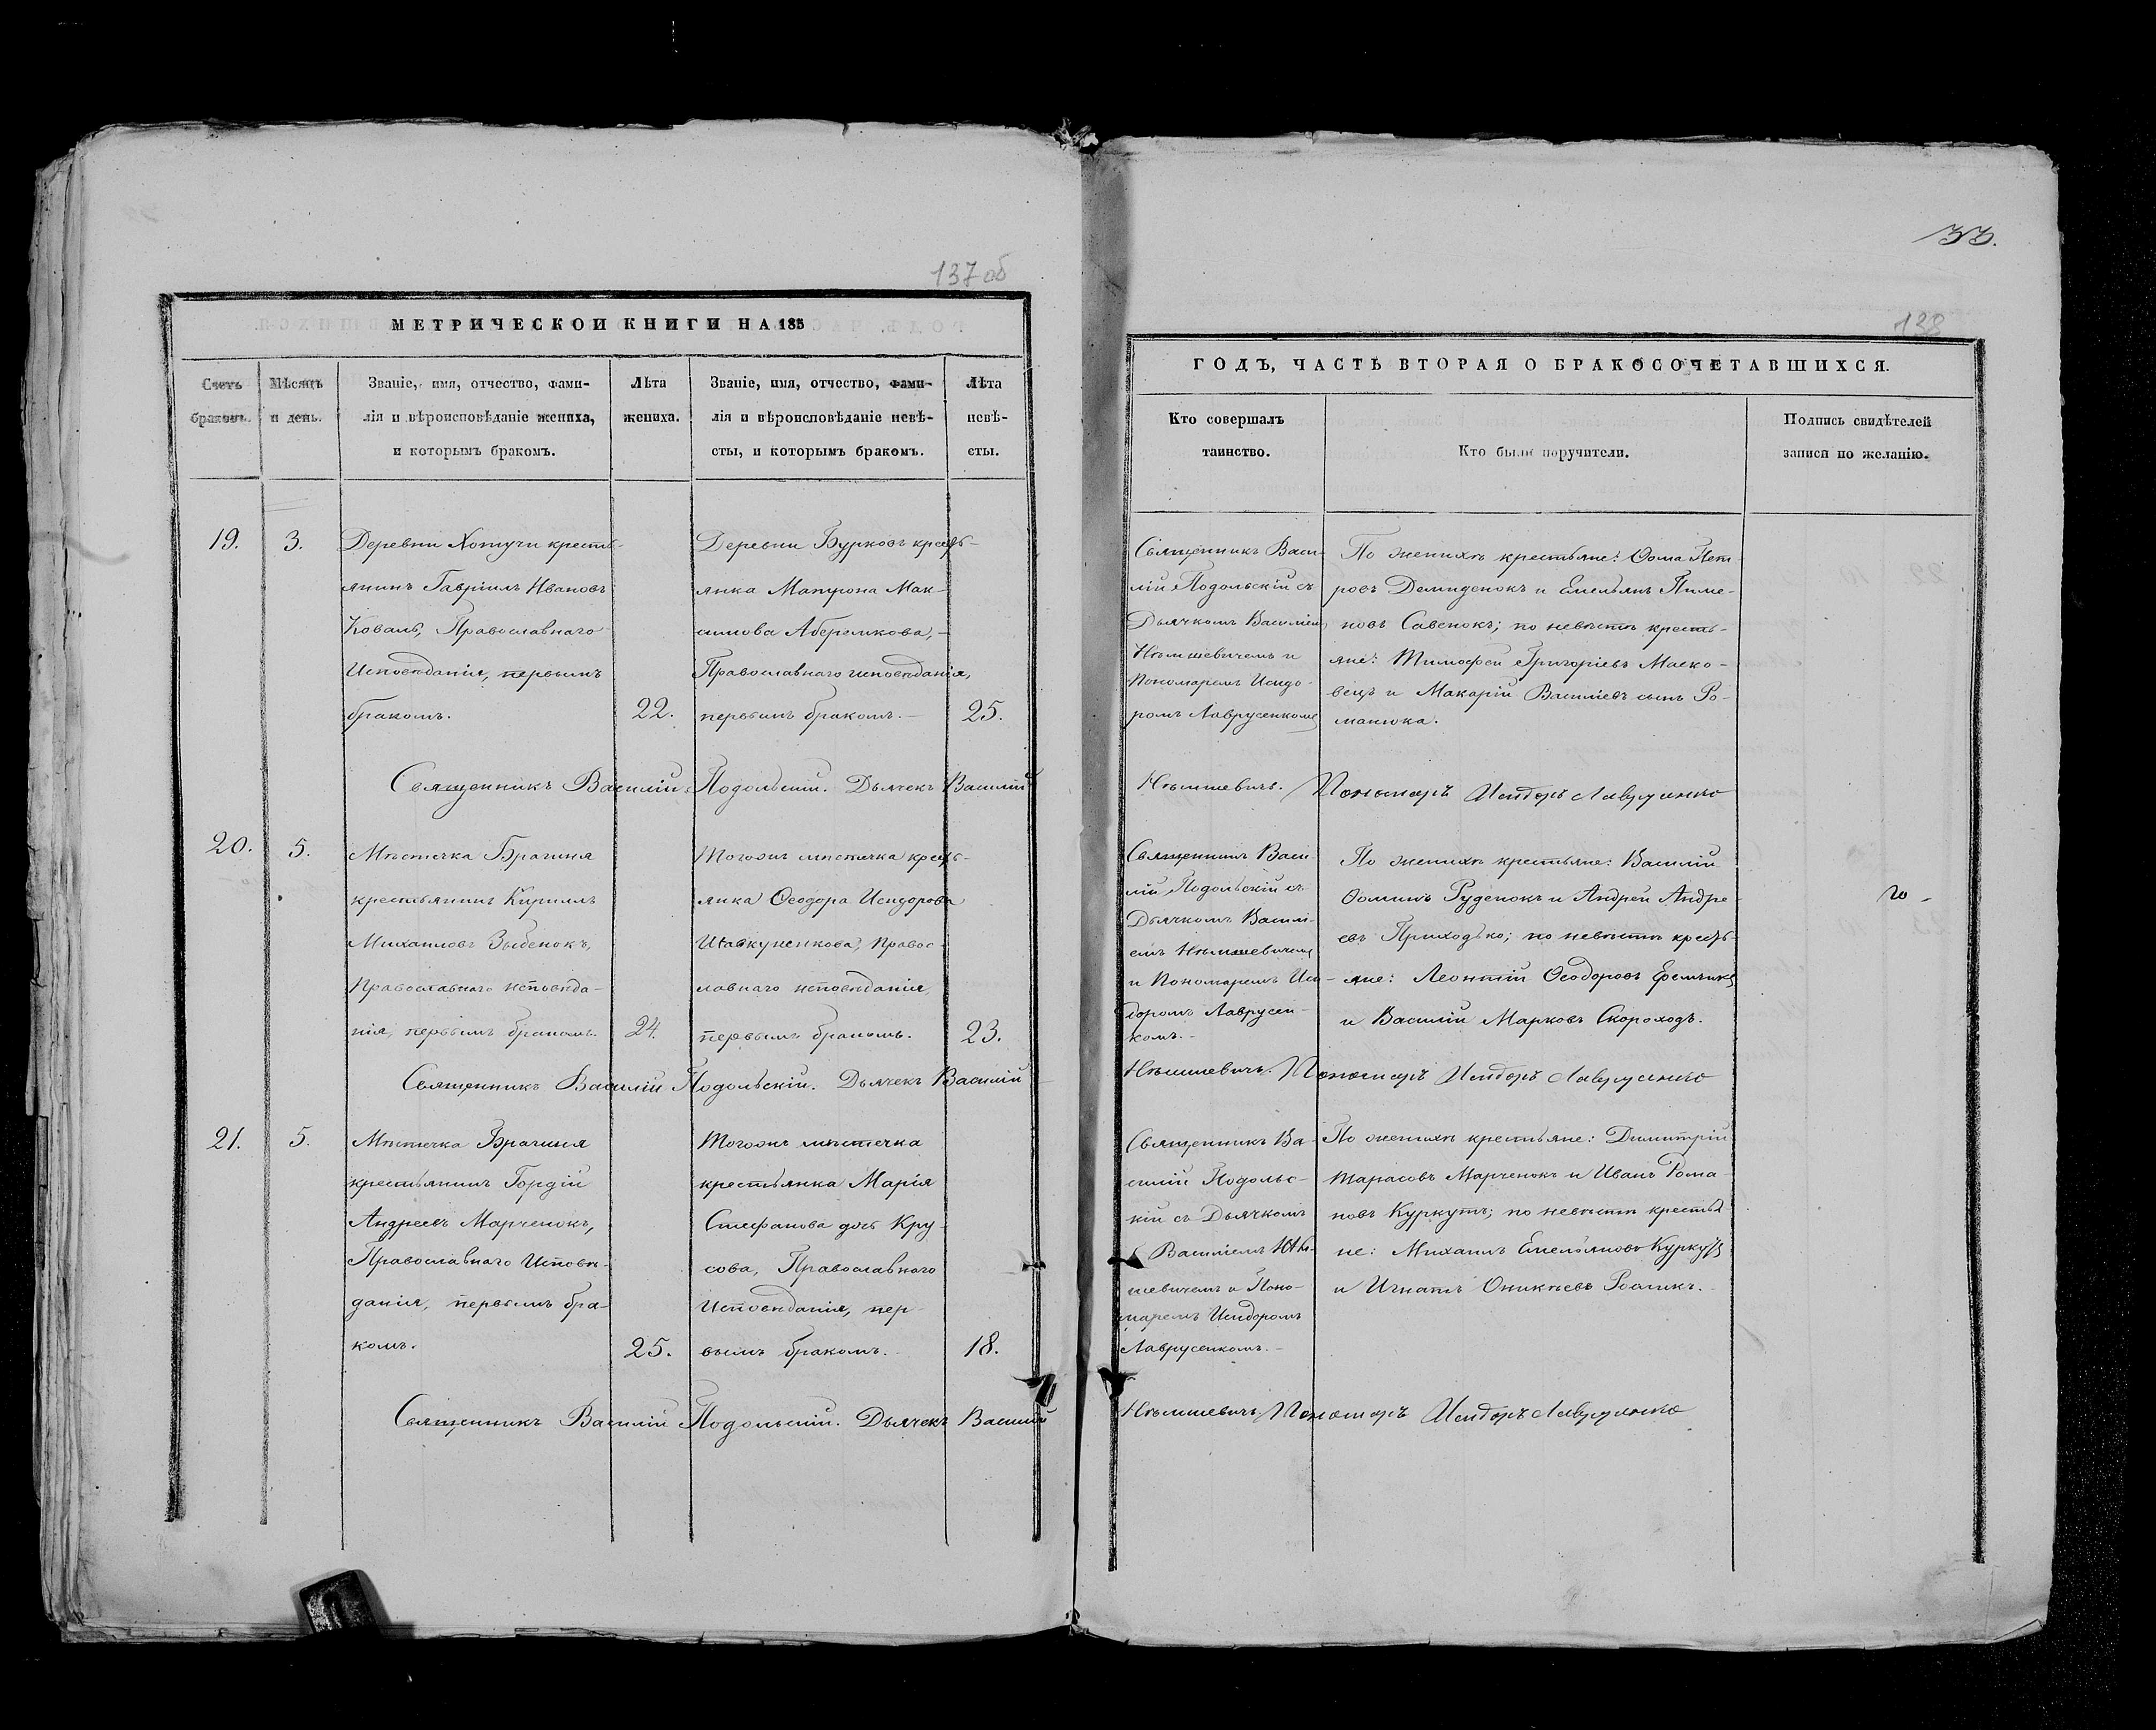 137 об
МЕТРИЧЕСКОЙ КНИГИ НА 185
Счетъ браковъ.
Мѣсяцъ и день.
Званіе, имя, отчество, фами-
лія и вѣроисповѣданіе жениха,
и которымъ бракомъ.
Лѣта
жениха.
Званіе, имя, отчество, фами-
лія и вѣроисповѣданіе невѣ-
сты, и которымъ бракомъ.
Лѣта
невѣ-
сты.
19.
3.
Деревни Хотучи кресть-
янинъ Гавріилъ Ивановъ
Коваль, Православнаго
Исповѣданія, первымъ
бракомъ.
22.
Деревни Бурковъ кресть-
янка Матрона Мак-
симова Аберемкова,
Православнаго исповѣданія,
первымъ бракомъ.
25.
Священникъ Василій Подольскій. Дьячекъ Василій
20.
5.
Мѣстечка Брагиня
крестьянинъ Кириллъ
Михаиловъ Зыбенокъ,
Православнаго исповѣда-
нія, первымъ бракомъ.
24.
Тогожъ мѣстечка кресть-
янка Ѳеодора Исидорова
Православнаго исповѣданія,
первымъ бракомъ.
23.
Священникъ Василій Подольскій. Дьячекъ Василій
21.
5.
Мѣстечка Брагиня
крестьянинъ Гордій
Андреевъ Марченокъ,
Православнаго Исповѣ-
данія, первымъ бра-
комъ.
25.
Тогожъ мѣстечка
крестьянка Марія
Стефанова дочь Кру-
сова, Православнаго
Исповѣданія, пер-
вымъ бракомъ.
18.
Священникъ Василій Подольскій. Дьячекъ Василій
138
ГОДЪ, ЧАСТЬ ВТОРАЯ О БРАКОСОЧЕТАВШИХСЯ.
Кто совершалъ
таинство.
Кто были поручители.
Подпись свидѣтелей
записи по желанію.
Священникъ Васи-
лій Подольскій съ
Дьячкомъ Василіемъ
Нѣмшевичемъ и
Пономаремъ Исидо-
ромъ Лаврусенкомъ
По женихѣ крестьяне: Ѳома Пет-
ровъ Демиденокъ и Емельянъ Пиме-
новъ Савенокъ; по невѣстѣ кресть-
яне: Тимофей Григоріевъ Маско-
вецъ и Макарій Василіевъ сынъ Ро-
манюка.
Нѣмшевичъ. Пономарь Исидоръ Лаврусенко
Священникъ Васи-
лій Подольскій съ
Дьячкомъ Василі-
емъ Нѣмшевичемъ
и Пономаремъ Иси-
доромъ Лаврусен-
комъ.
По женихѣ крестьяне: Василій
Ѳоминъ Руденокъ и Андрей Андре-
евъ Приходько; по невѣстѣ кресть-
яне: Леонтій Ѳеодоровъ
и Василій Марковъ Скороходъ.
Нѣмшевичъ. Пономарь Исидоръ Лаврусенко
Священникъ Ва-
силій Подольс-
кій съ Дьячкомъ
Василіемъ Нѣм-
шевичемъ и Поно-
маремъ Исидоромъ
Лаврусенкомъ.
По женихѣ крестьяне: Димитрій
Тарасовъ Марченокъ и Иванъ Рома-
новъ Куркутъ; по невѣстѣ крестья-
не: Михаилъ Емельяновъ Куркутъ
и Игнатъ Оникѣевъ
Нѣмшевичъ. Пономарь Исидоръ Лаврусенко